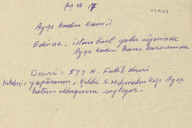 Ayşe kadın camii
Edirne, istanbul yolu üzerinde
Ayşe kadın hanı karşısında
Devri: 873 H. Fatih devri
yaptıranın, Çelebi S. Mehmedin kızı Ayşe
hatun olduğunu söylüyor.